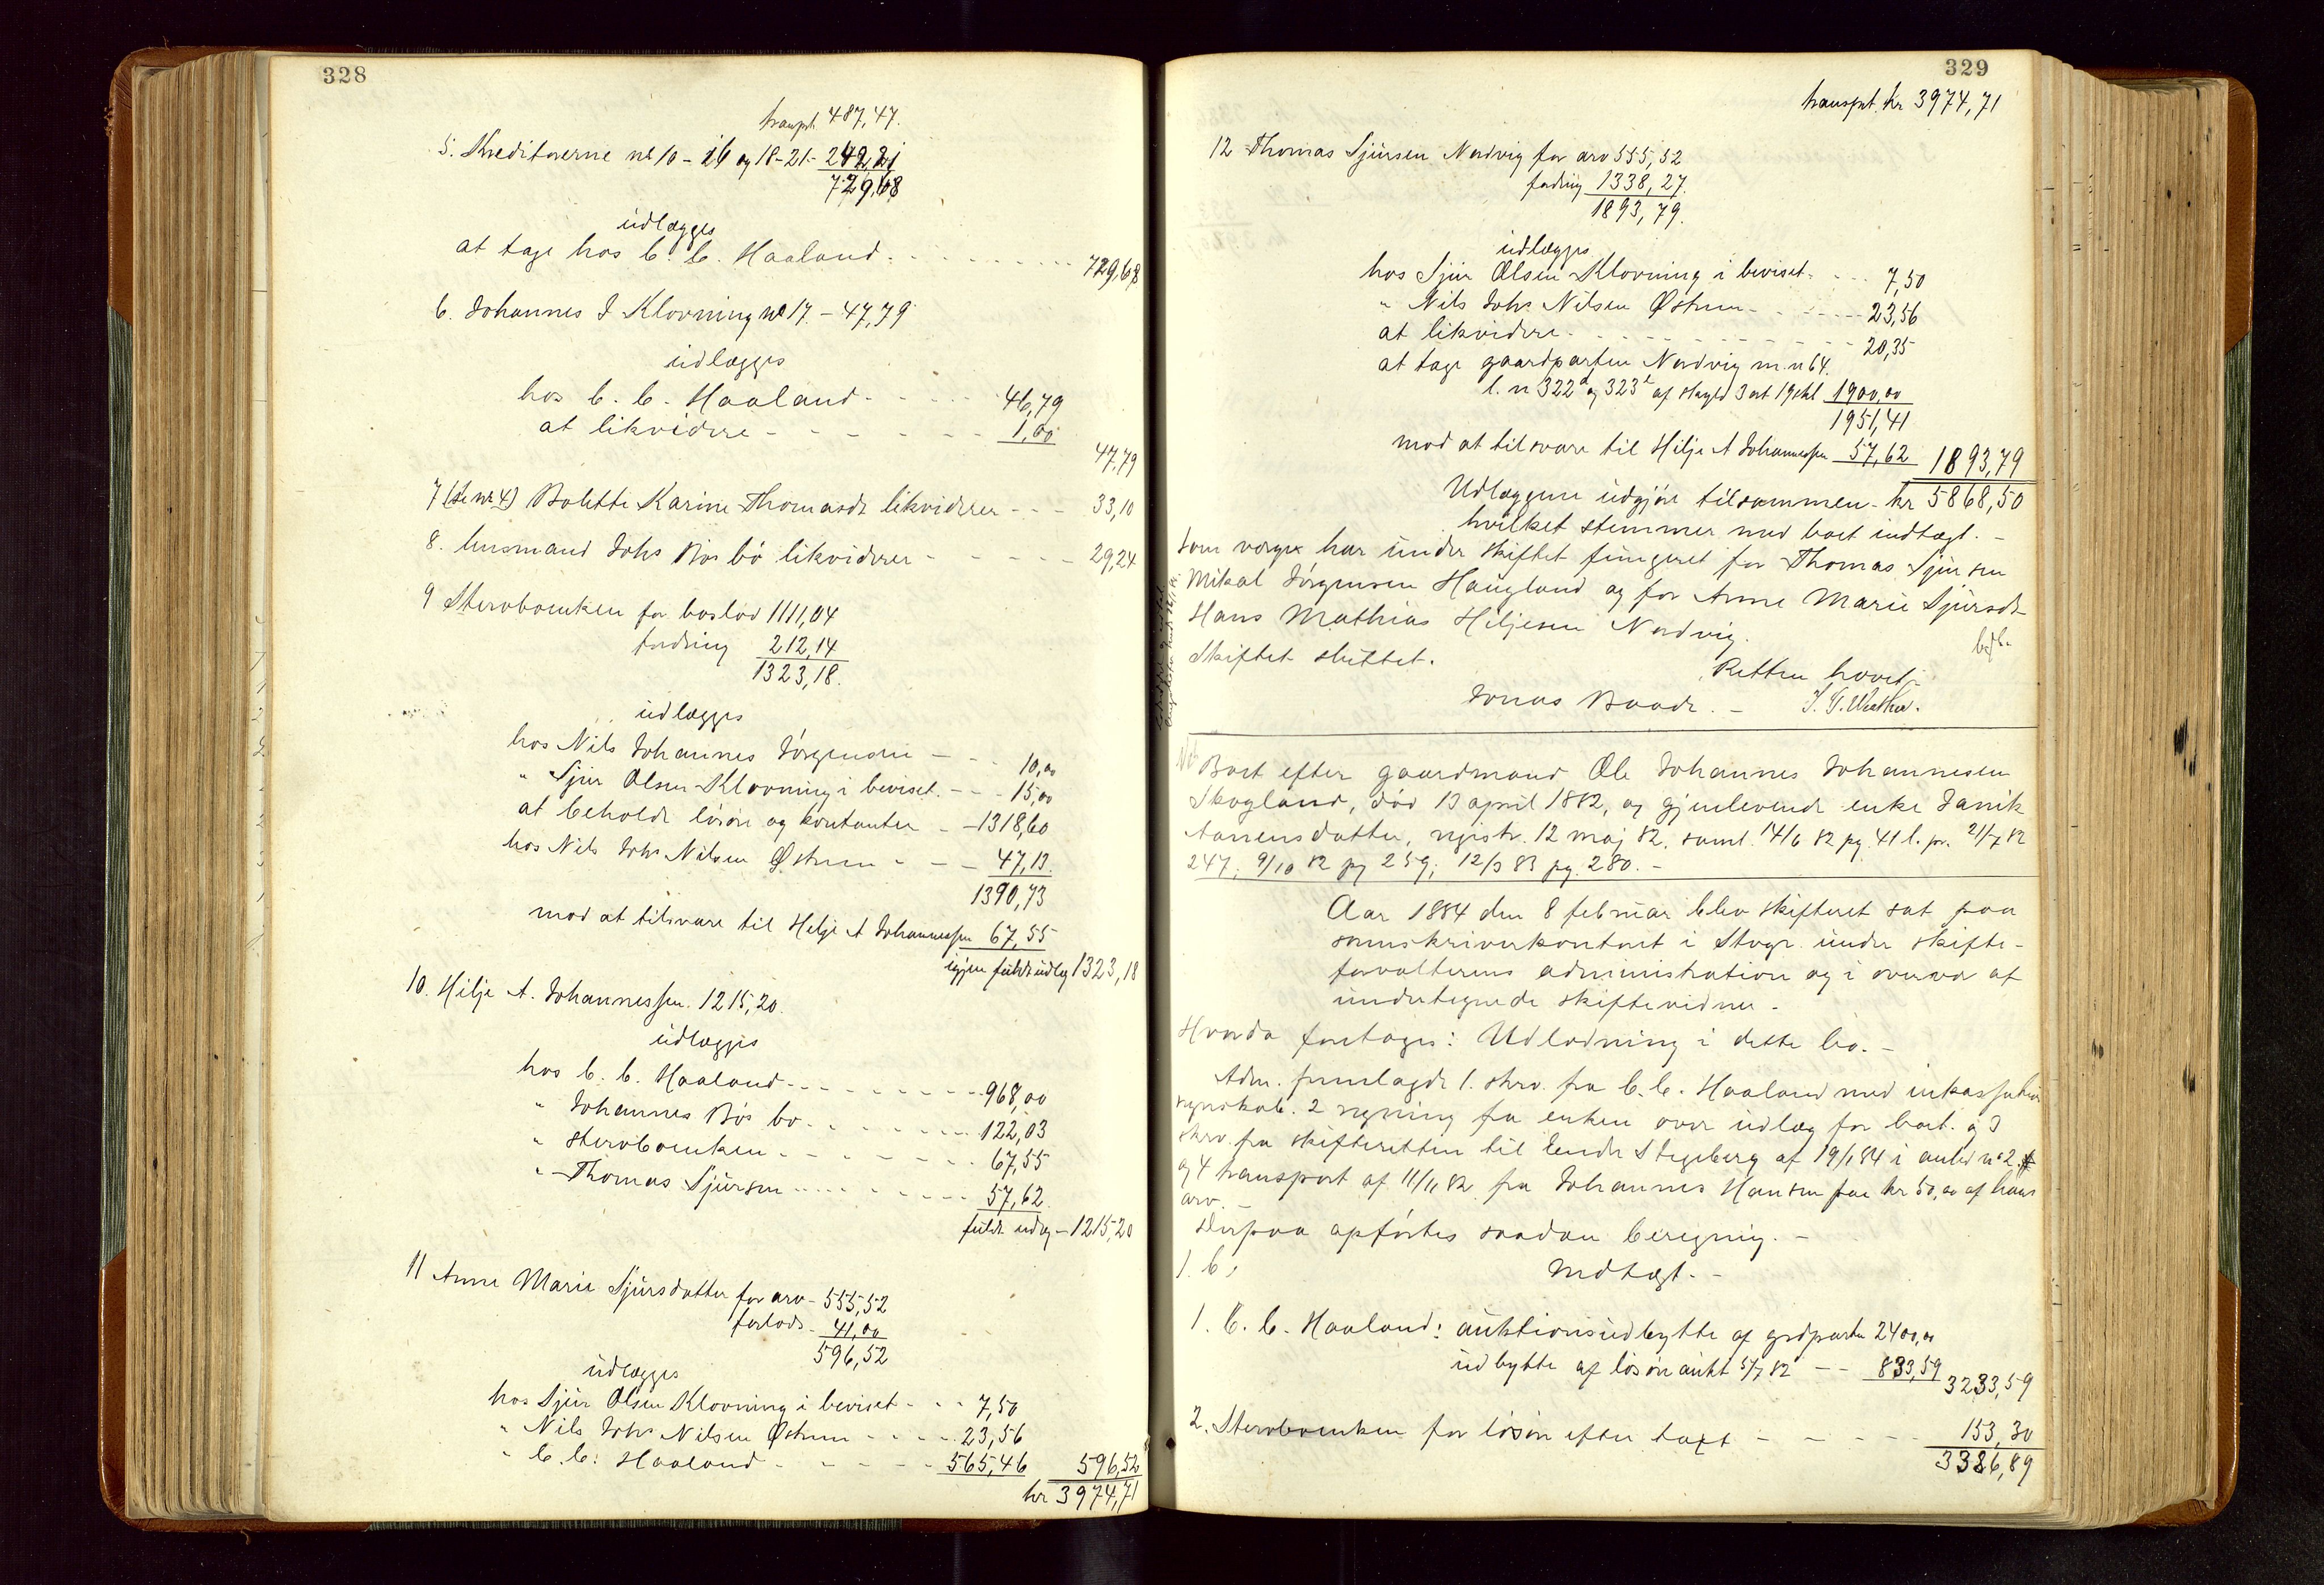 328
transpt. 487,47.
5. Kreditorerne nr 10 - 16 og 18-21 - 242,21
729,68
udlægges
at tage hos C. C. Haaland. - - - - 729,68
6. Johannes J Klovning nr 17. - 47,79
udlægges
hos C. C. Haaland - - - - 46,79
at likvidere - - - - - - 1,00
47,79
7 (se nr 4) Bolette Karine Thomasdr likviderer - - - 33,10
8. husmand Johs Bös bo likviderer - - - - - 29,24
9 Stervboenken for boslod 1111,04
fordring 212,14
1323,18.
udlægges
hos Nils Johannes Jörgensen - - - 10,00
" Sjur Olsen Klovning i beviset. - - - 15,00
at beholde lösöre og kontanter - - 1318,60
hos Nils Johs Nilsen Østrem - - - 47,13.
1390,73
mod at tilsvare til Helje A Johannessen 67,55
igjen fuldt udlæg 1323,18
10. Hilje A. Johannessen. 1215,20.
udlægges
hos C. C. Haaland - - - - - 968,00
" Johannes Bös bo - - - - 122,03
" stervboenken - - - - - - 67,55
" Thomas Sjursen - - - - - 57,62
fuldt udlæg - 1215,20
11 Anne Marie Sjursdatter for arv - 555,52
forlods - 41,00
596,52
udlægges
hos Sjur Olsen Klovning i beviset - - - 7,50
" Nils Johs Nilsen Østrem - - - - 23,56
" C. C. Haaland - - - - - 565,46 596,52
kr 3974,71
329
transpt. kr 3974,71
12 Thomas Sjursen Nordvig for arv 555,52
fordring 1338,27.
1893,79.
udlægges
hos Sjur Olsen Klovning i beviset. - - - 7,50
" Nils Johs Nilsen Østrem - - - - 23,56
at likvidere - - - - - - - 20,35
at tage gaardparten Nordvig m. n 64.
l. n 322 og 323 af skyld 3 ort 19 skl 1900,00
1951,41
mod at tilsvare til Hilje A Johannessen 57,62 1893,79
Udlæggene udgjör tilsammen - kr 5868,50
hvilket stemmer med boets indtægt. -
Som værger har under skiftet fungeret for Thomas Sjursen
Mikal Jörgensen Haugland og for Anne Marie Sjursdr
Hans Mathias Hiljesen Nordvig.
Skiftet sluttet.
Retten hævet
Jonas Baade. -
Boet efter gaardmand Ole Johannes Johannesen
Skogland, död 13 april 1882, og gjenlevende enke Janik
Aanensdatter, registr. 12 maj 82, saml. 14/6 82 pg. 41 l. pr. 21/7 82
247; 9/10 82 pg 259; 12/3 83 pg. 280. -
Aar 1884 den 8 februar blev skifteret sat paa
sorenskriverkontoret i Stvgr. under skifte-
forvalterens administration og i overvær af
undertegnede skiftevidner. -
Hvorda foretoges: Udlodning i dette bo. -
Adm. fremlagde 1. skrv. fra C. C. Haaland med inkassations
regnskab. 2 regning fra enken over udlæg for boet. og 3
skrv. fra skifteretten til lensm. Stegeberg af 19/1 84 i anled nr 2.
og 4 transport af 11/11 82 fra Johannes Hansen paa kr 50,00 af hans
arv. -
Derpaa opförtes saadan beregning. -
Indtægt. -
1. C. C. Haaland: auktionsudbytte af grdparten 2400,00
udbytte af lösöreaukt 5/7 82 - - 833,59
3233,59
2. Stervboenken for lösöre efter taxt - - - - 153,30
3386,89